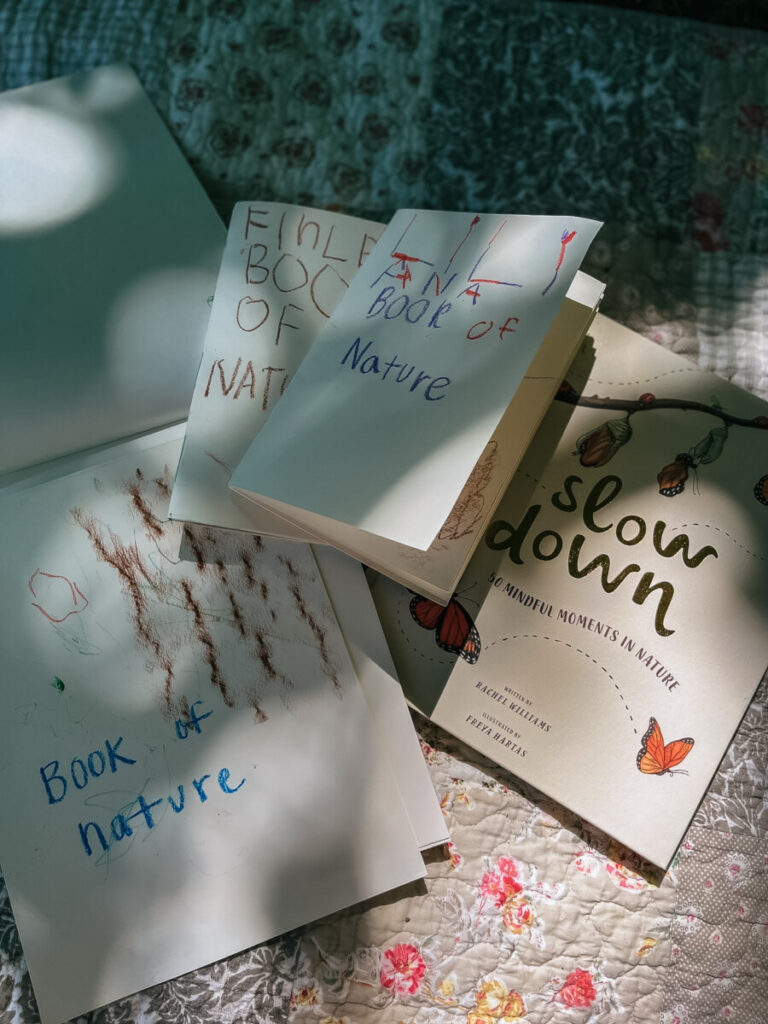 FInLE
BOO
OF
NAT
LILI
ANA
BOOK OF
Nature
slow
down
50 MINDFUL MOMENTS IN NATURE
WRITTEN BY
RACHEL WILLIAMS
ILLUSTRATED BY
FREYA HARTAS
BOOK of
nature